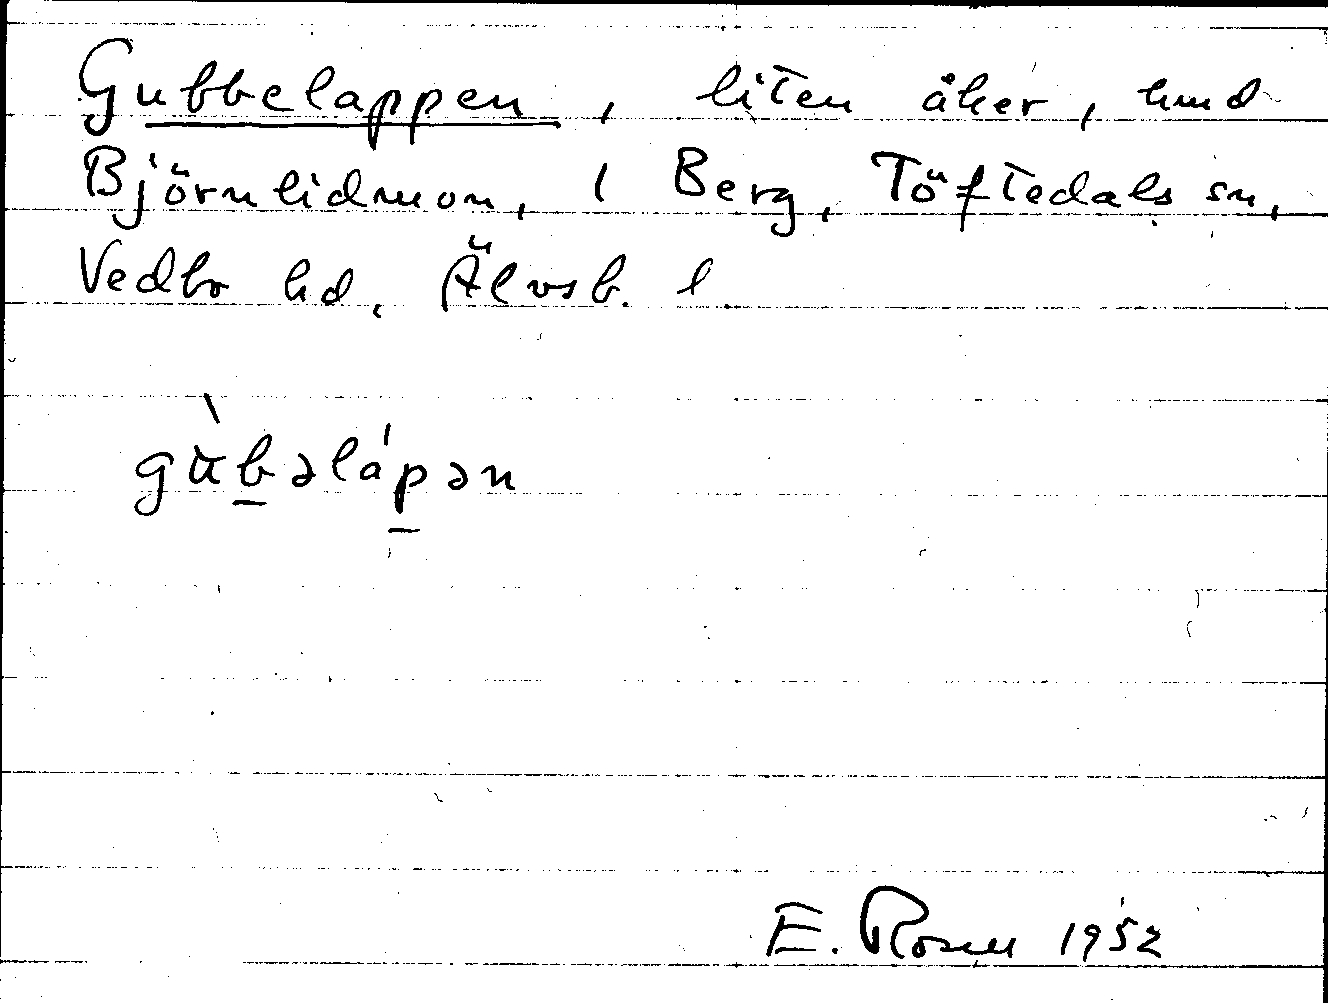 Gubbelappen, liten åker, hmd
Björnlidmon, 1 Berg, Töftedals sn,
Vedbo hd, Älvsb. l
gùbəlápən
E. Rosell 1952